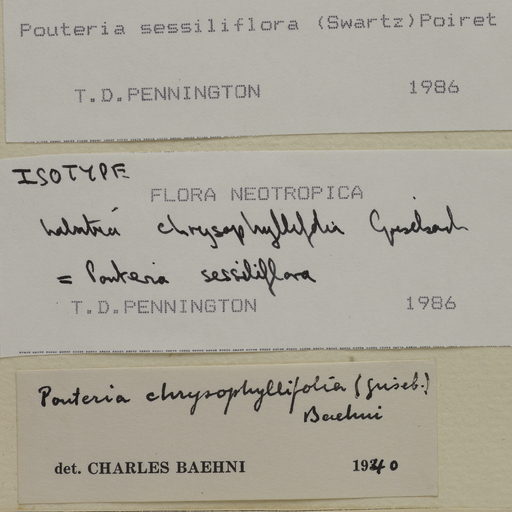 Pouteria sessiliflora (Swartz)Poiret
T.D.PENNINGTON 1986
ISOTYPE
FLORA NEOTROPICA
chrysophyllifolia Grisebach
= Pouteria sessiliflora
T.D.PENNINGTON 1986
Pouteria chrysophyllifolia (Griseb.)
Baehni
det. CHARLES BAEHNI 1940